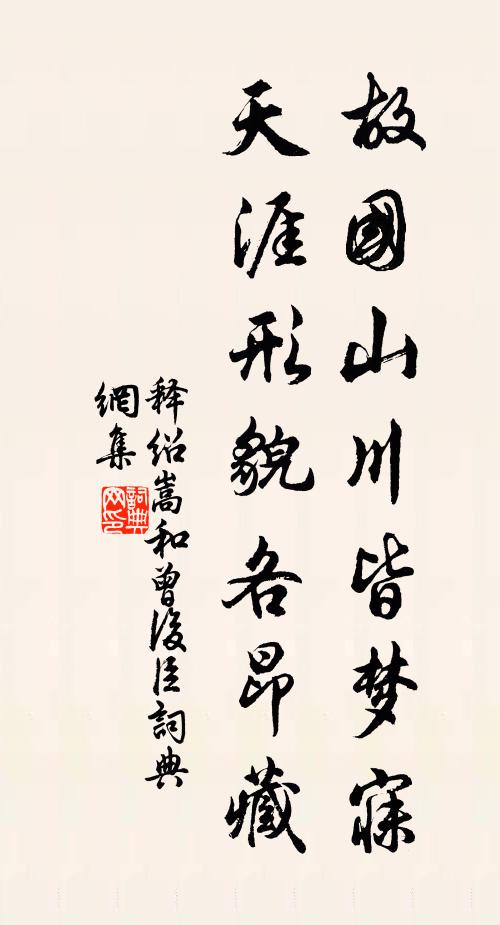 故國山川皆梦寐
天涯形貌各昂藏
释绍嵩和曾浚臣詞典
網集
詞典
网印